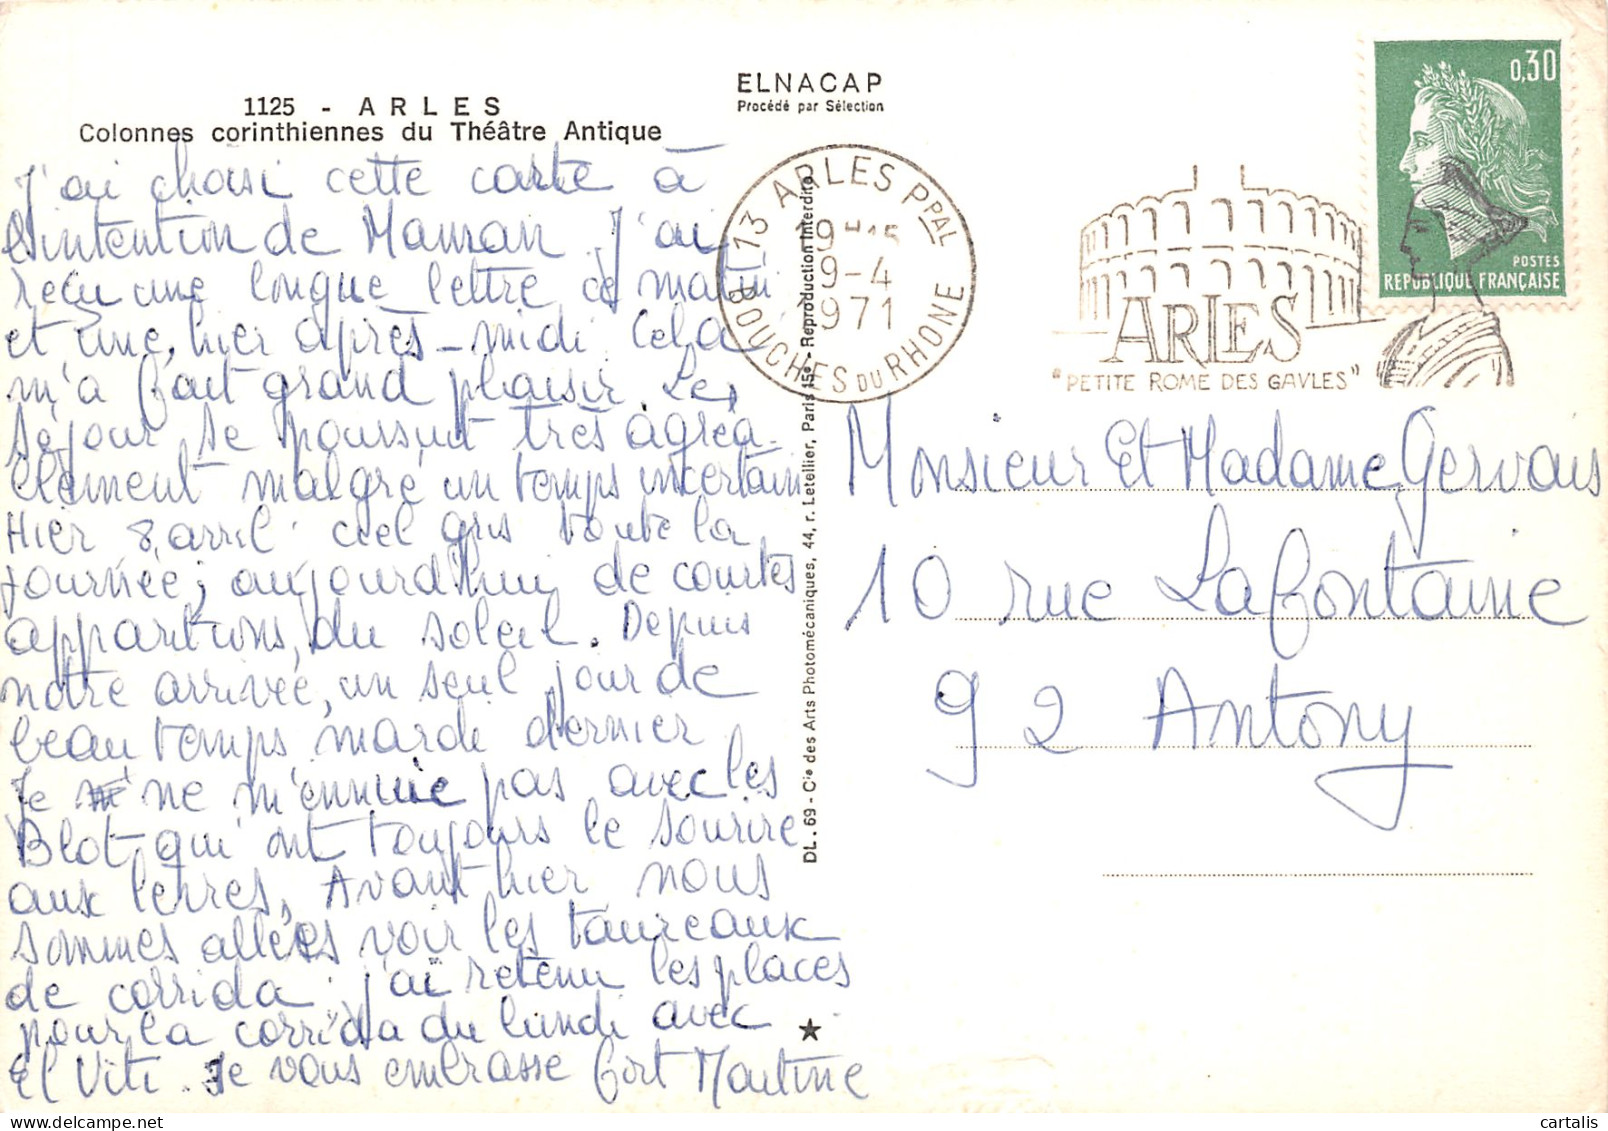 1125 - ARLES
Colonnes corinthiennes du Théâtre Antique
ELNACAP
Procédé par Sélection
J'ai choisi cette carte à
l'intention de Maman. J'ai
reçu une longue lettre ce matin
et une, hier après-midi. Cela
m'a fait grand plaisir. Le
séjour se poursuit très agréa-
blement malgré un temps incertain
Hier 8 avril ciel gris toute la
journée; aujourd'hui de courtes
apparitions du soleil. Depuis
notre arrivée, un seul jour de
beau temps, mardi dernier
Je ne m'ennuie pas avec les
Blot qui ont toujours le sourire
aux lèvres, Avant hier nous
sommes allées voir les taureaux
de corrida. j'ai retenu les places
pour la corrida du lundi avec
El Viti. Je vous embrasse fort Martine
DL. 69 - Cie des Arts Photomécaniques, 44, r. Letellier, Paris 15e - Reproduction interdite
13 ARLES PPAL
19H15
9-4
1971
BOUCHES DU RHONE
ARLES
"PETITE ROME DES GAVLES"
0,30
POSTES
REPUBLIQUE FRANÇAISE
Monsieur Et Madame Gervais
10 rue Lafontaine
92 Antony
cartalis